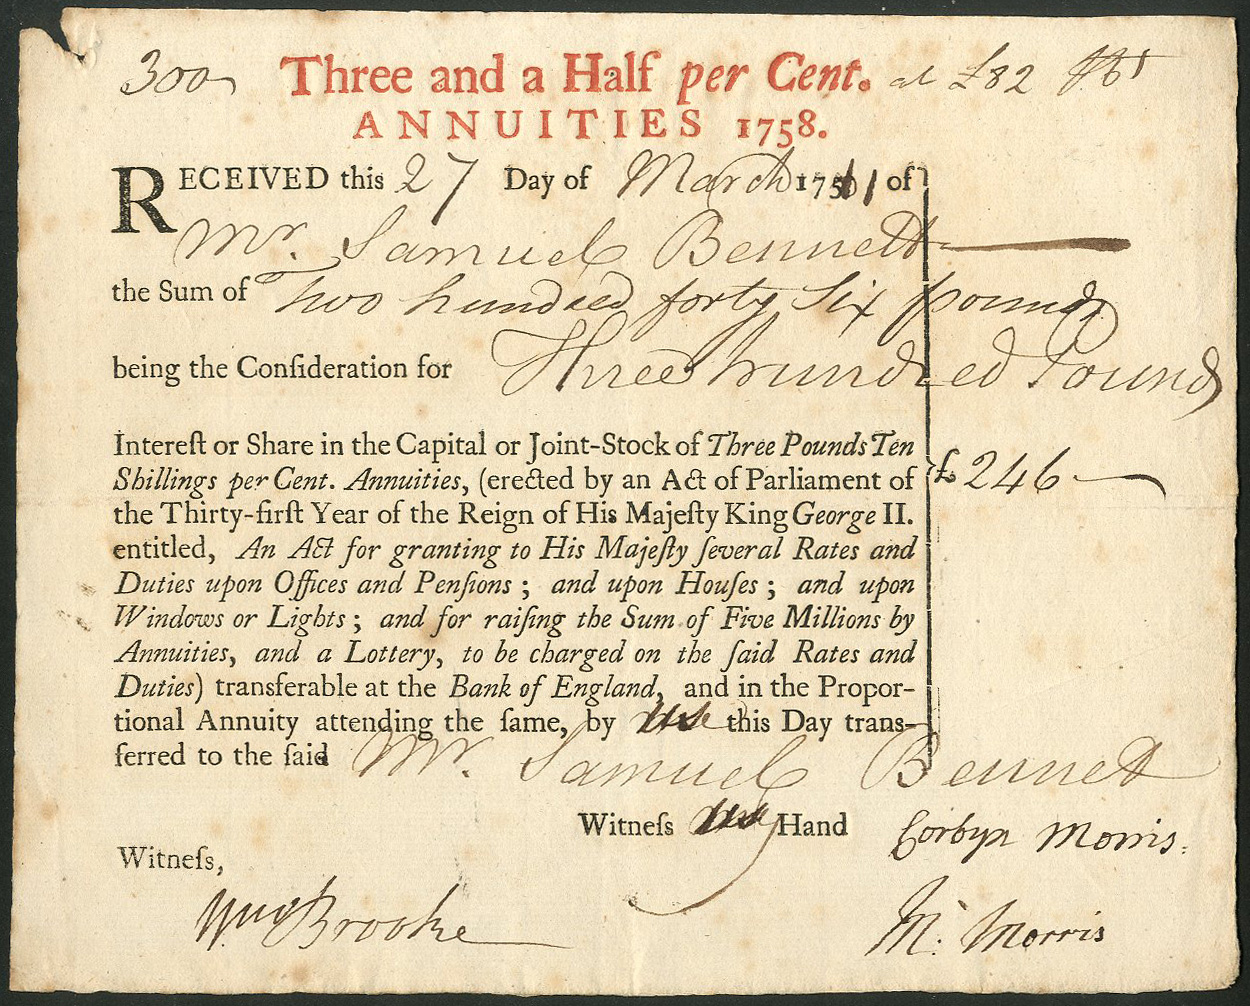 300 Three and a Half per Cent. at £82
ANNUITIES 1758.
RECEIVED this 27 Day of March 1761 of
Mr. Samuel Bennett
the Sum of Two hundred forty Six pounds
being the Conſideration for Three hundred Pounds
Intereſt or Share in the Capital or Joint-Stock of Three Pounds Ten
Shillings per Cent. Annuities, (erected by an Act of Parliament of
the Thirty-firſt Year of the Reign of His Majeſty King George II.
entitled, An Act for granting to His Majeſty ſeveral Rates and
Duties upon Offices and Penſions; and upon Houſes; and upon
Windows or Lights; and for raiſing the Sum of Five Millions by
Annuities, and a Lottery, to be charged on the ſaid Rates and
Duties) transferable at the Bank of England, and in the Propor-
£246
tional Annuity attending the ſame, by us this Day tranſ-
ferred to the ſaid Mr. Samuel Bennett
Witneſs our Hand Corbyn Morris.
Witneſs,
Wm Brooke
M. Morris